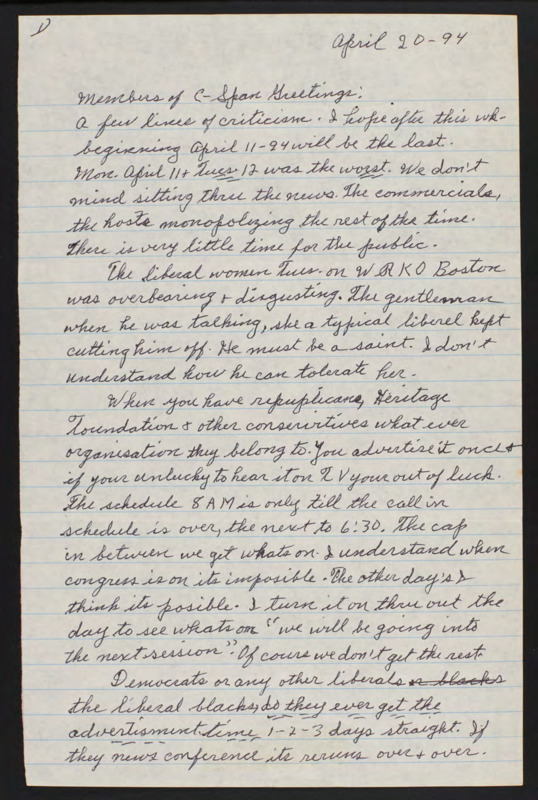 1)
April 20-94
Members of C-Span Greetings:
A few lines of criticism. I hope after this wk-
beginning April 11-94 will be the last.
Mon. April 11 + Tues. 12 was the worst. We don't
mind sitting thru the news. The commercials,
the hosts monopolizing the rest of the time.
There is very little time for the public.
The liberal women Tues. on WRKO Boston
was overbearing + disgusting. The gentleman
when he was talking, she a typical liberel kept
cutting him off. He must be a saint. I don't
understand how he can tolerate her.
When you have republicans, Heritage
Foundation & other conservitives what ever
organisation they belong to. You advertise it once +
if your unlucky to hear it on TV your out of luck.
The schedule 8 AM is only till the call in
schedule is over, the next to 6:30. The cap
in between we get whats on. I understand when
congress is on its imposible. The other day's I
think its posible. I turn it on thru out the
day to see whats on "we will be going into
the next session". Of cours we don't get the rest.
Democrats or any other liberals or blacks
the liberal blacks, do they ever get the
advertisment time 1-2-3 days straight. If
they news conference its reruns over + over.